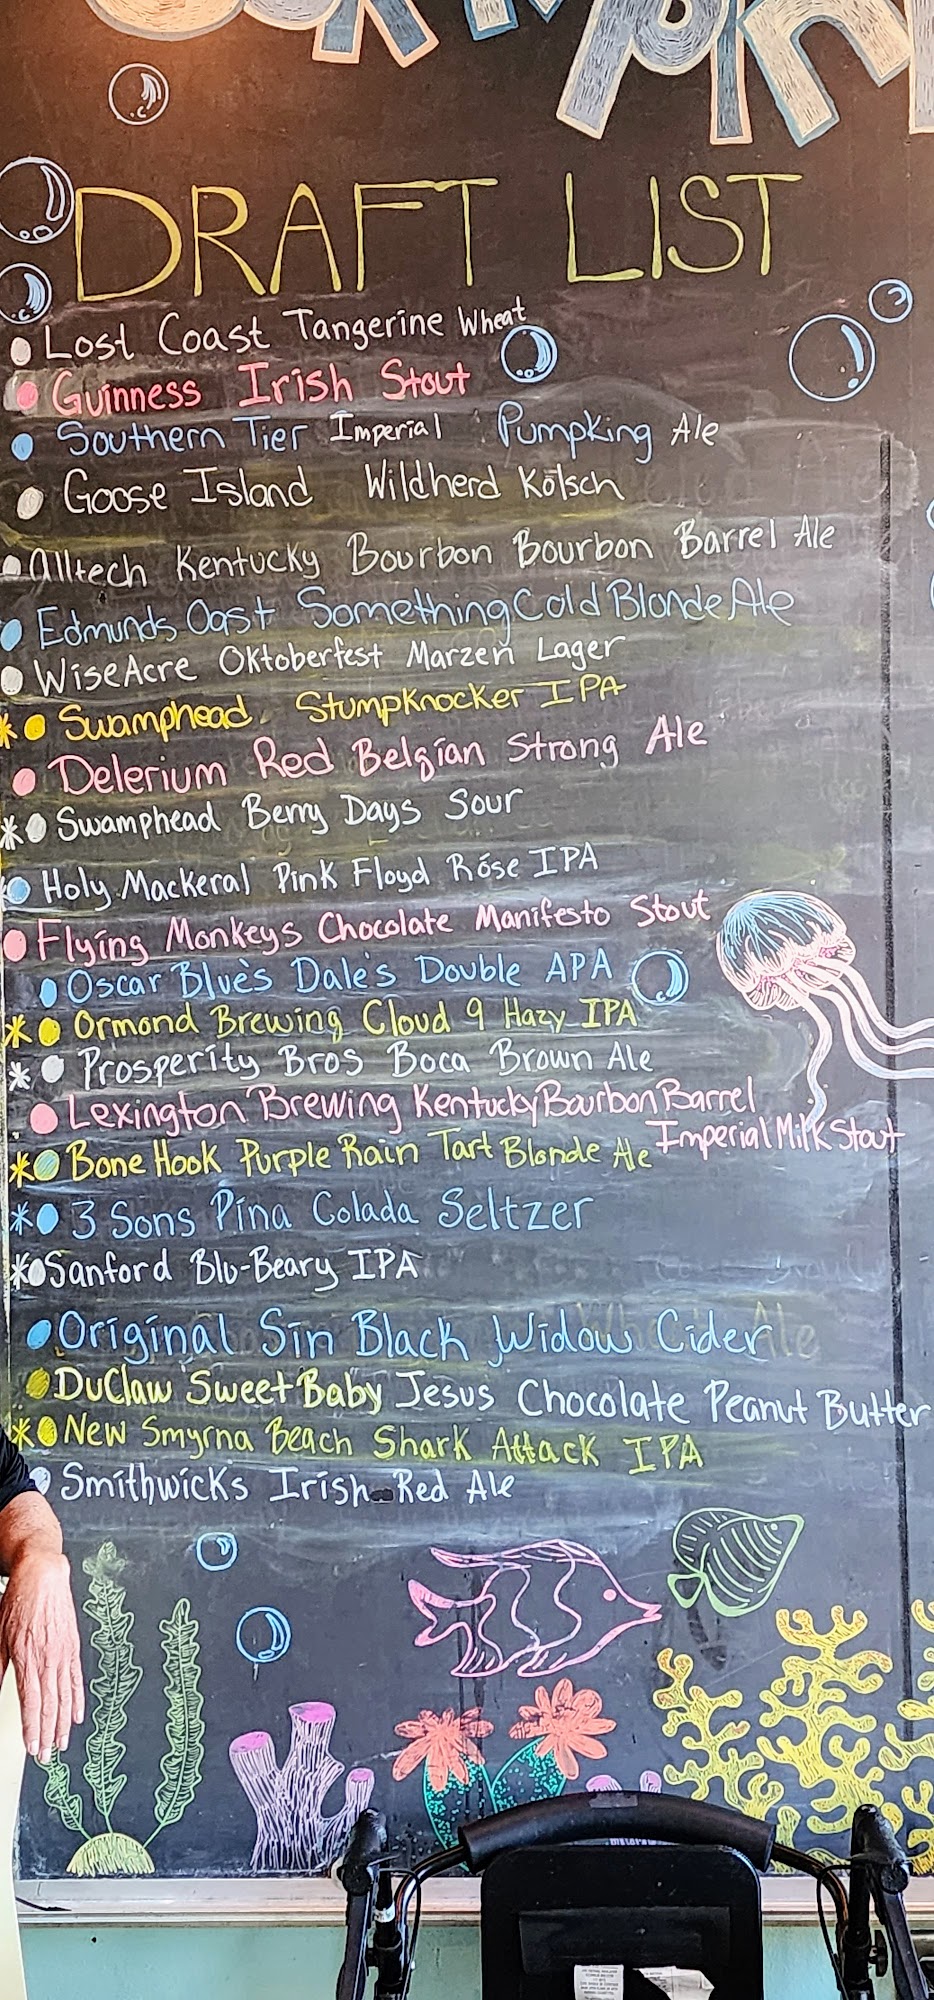 DRAFT LIST
Lost Coast Tangerine Wheat
Guinness Irish Stout
Southern Tier Imperial Pumpking Ale
Goose Island Wildherd Kölsch
Alltech Kentucky Bourbon Bourbon Barrel Ale
Edmunds Oast Something Cold Blonde Ale
WiseAcre Oktoberfest Marzen Lager
* Swamphead Stumpknocker IPA
Delerium Red Belgian Strong Ale
* Swamphead Berry Days Sour
Holy Mackeral Pink Floyd Róse IPA
Flying Monkeys Chocolate Manifesto Stout
Oscar Blues Dale's Double APA
* Ormond Brewing Cloud 9 Hazy IPA
* Prosperity Bros Boca Brown Ale
Lexington Brewing Kentucky Bourbon Barrel
Imperial Milk Stout
* Bone Hook Purple Rain Tart Blonde Ale
* 3 Sons Pina Colada Seltzer
* Sanford Blu-Beary IPA
Original Sin Black Widow Cider
DuClaw Sweet Baby Jesus Chocolate Peanut Butter
* New Smyrna Beach Shark Attack IPA
Smithwick's Irish Red Ale